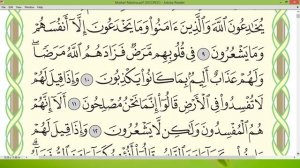 Mushaf Madina.pdf (SECURED) - Adobe Reader
يُخَٰدِعُونَ ٱللَّهَ وَٱلَّذِينَ ءَامَنُوا۟ وَمَا يَخْدَعُونَ إِلَّآ أَنفُسَهُمْ
وَمَا يَشْعُرُونَ ٩ فِى قُلُوبِهِم مَّرَضٌ فَزَادَهُمُ ٱللَّهُ مَرَضًا
وَلَهُمْ عَذَابٌ أَلِيمٌۢ بِمَا كَانُوا۟ يَكْذِبُونَ ١٠ وَإِذَا قِيلَ لَهُمْ
لَا تُفْسِدُوا۟ فِى ٱلْأَرْضِ قَالُوٓا۟ إِنَّمَا نَحْنُ مُصْلِحُونَ ١١ أَلَآ إِنَّهُمْ
هُمُ ٱلْمُفْسِدُونَ وَلَٰكِن لَّا يَشْعُرُونَ ١٢ وَإِذَا قِيلَ لَهُمْ